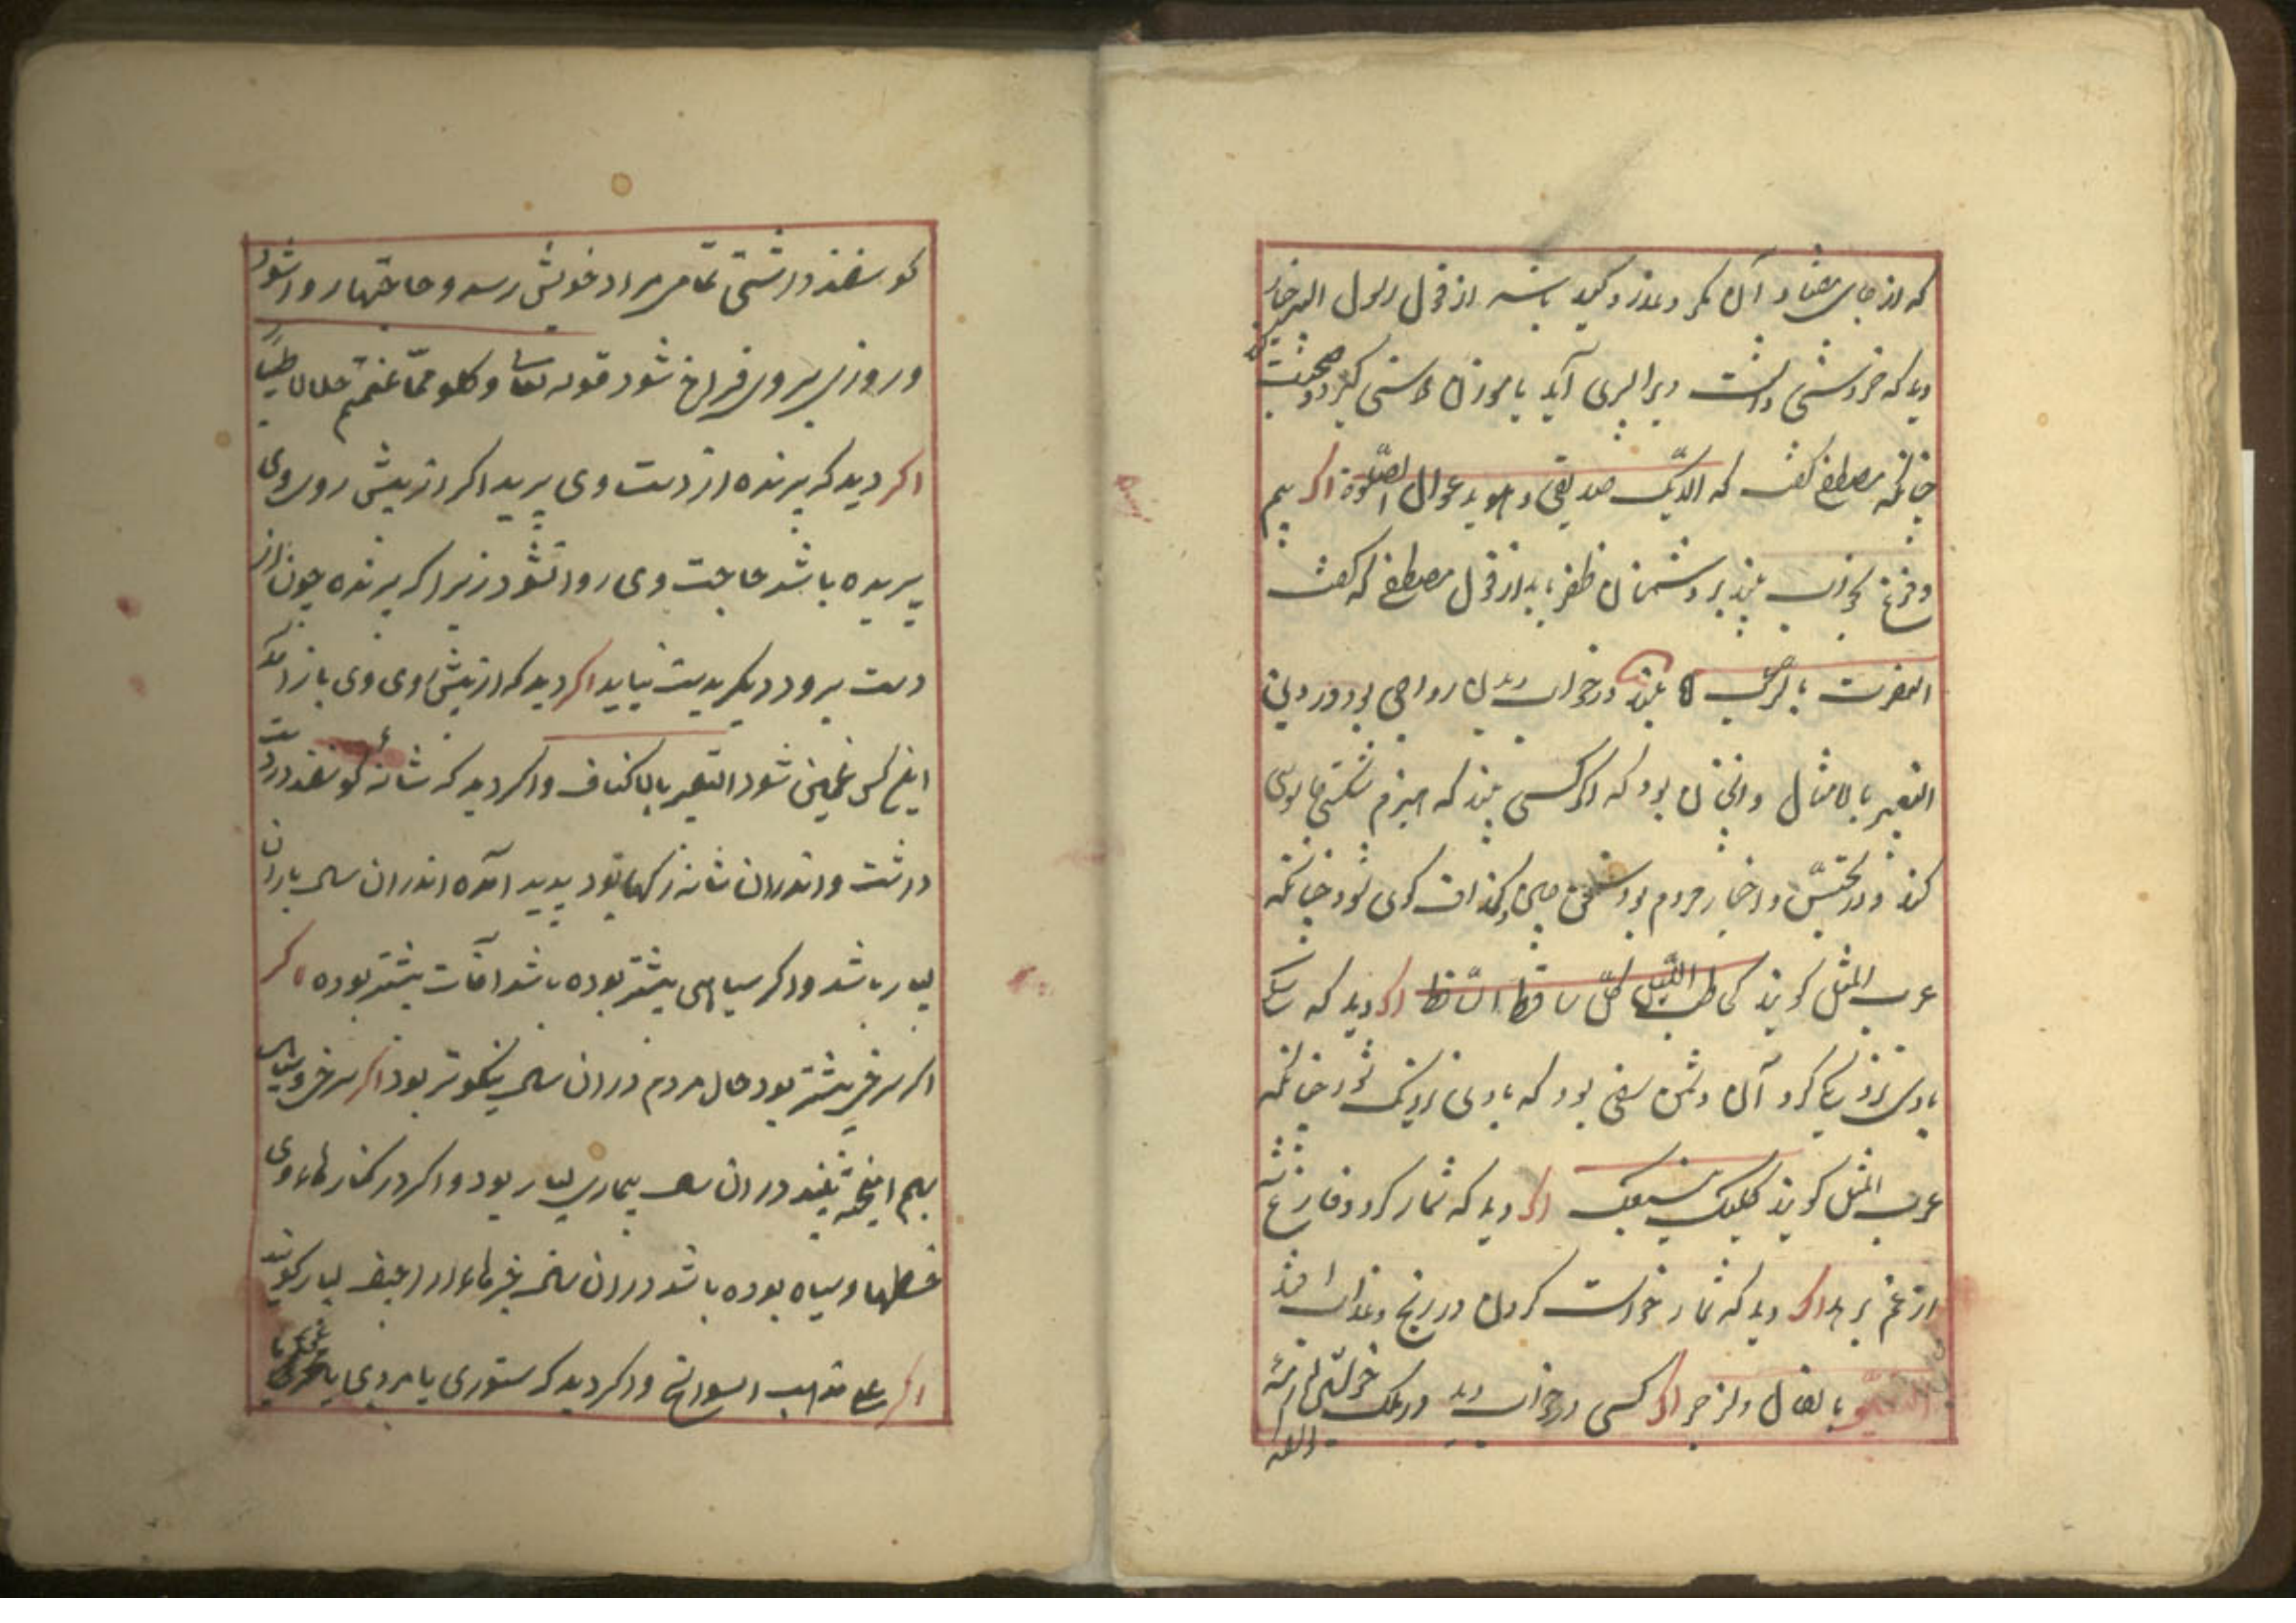 که از جای مضاد آن مکر و غدر و کید باشد از قول رسول الله چنان
دید که خروشی داشت ویرا پسری آید یا موزن دوستی گیرد و صحبت کند
چنانکه مصطفی گفت که الدیک صدیقی و هو یدعوا الی الصلوة اگر سیم
و فرغ بخواب بیند بر دشمنان ظفر یابد از قول مصطفی که گفت
النصرت بالرعب بیند در خواب دیدن رواجی بود ور دیدن
التعبیر بالامثال و انچنان بود که اگر کسی بیند که هیزم شکستی جاسوسی
کند و در تجسس و اخبار مردم بود سخن چین و گزاف گوی شود چنانکه
عرب المثل گویند حاطب اللیل لکل ساقط لاقط اگر دید که سگی
با وی نزدیکی کرد آن دشمن سفی بود که با وی نزدیک شود چنانکه
عرب المثل گویند کلبک یتبعک اگر دید که نماز کرد و فارغ شد
از غم برهد اگر دید که نماز خواست کردن در رنج و عذاب افتد
التعبیر بالفال والزجر اگر کسی در خواب دید در ملک
گوسفند داشتی تمامی مراد خویش رسد و حاجتها روا شود
و روزی بر وی فراخ شود قوله تعالی و کلو مما غنمتم حلالا طیبا
اگر دید که پرنده از دست وی پرید اگر از پیش روی وی
پریده باشد حاجت وی روا نشود زیرا که پرنده چون از
دست برود دیگر بدست نیاید اگر دید که از پیش وی وی باز آمد
این کس غمین شود التعبیر بالاکتاف و اگر دید که شانه گوسفند در دست
داشت و اندران شانه رگها بود پدید آمده اندران سال باران
بسیار باشد و اگر سیاهی بیشتر بوده باشد آفات بیشتر بوده اگر
اگر سرخی بیشتر بود حال مردم دران سال نیکوتر بود اگر سرخی و سیاهی
بهم آمیخته بیند دران سال بیماری بسیار بود و اگر در کنارهاء وی
خطها و سیاه بوده باشد دران سال خبرهاء اراجیف بسیار گویند
اگر علی مذاهب السوانح و اگر دید که ستوری یا مردی یا